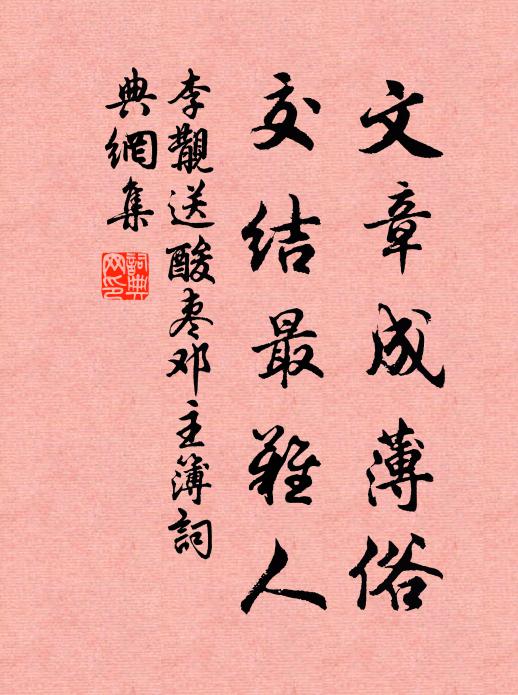 文章成薄俗
交结最难人
李觏送酸枣邓主簿詞
典網集
詞典網印